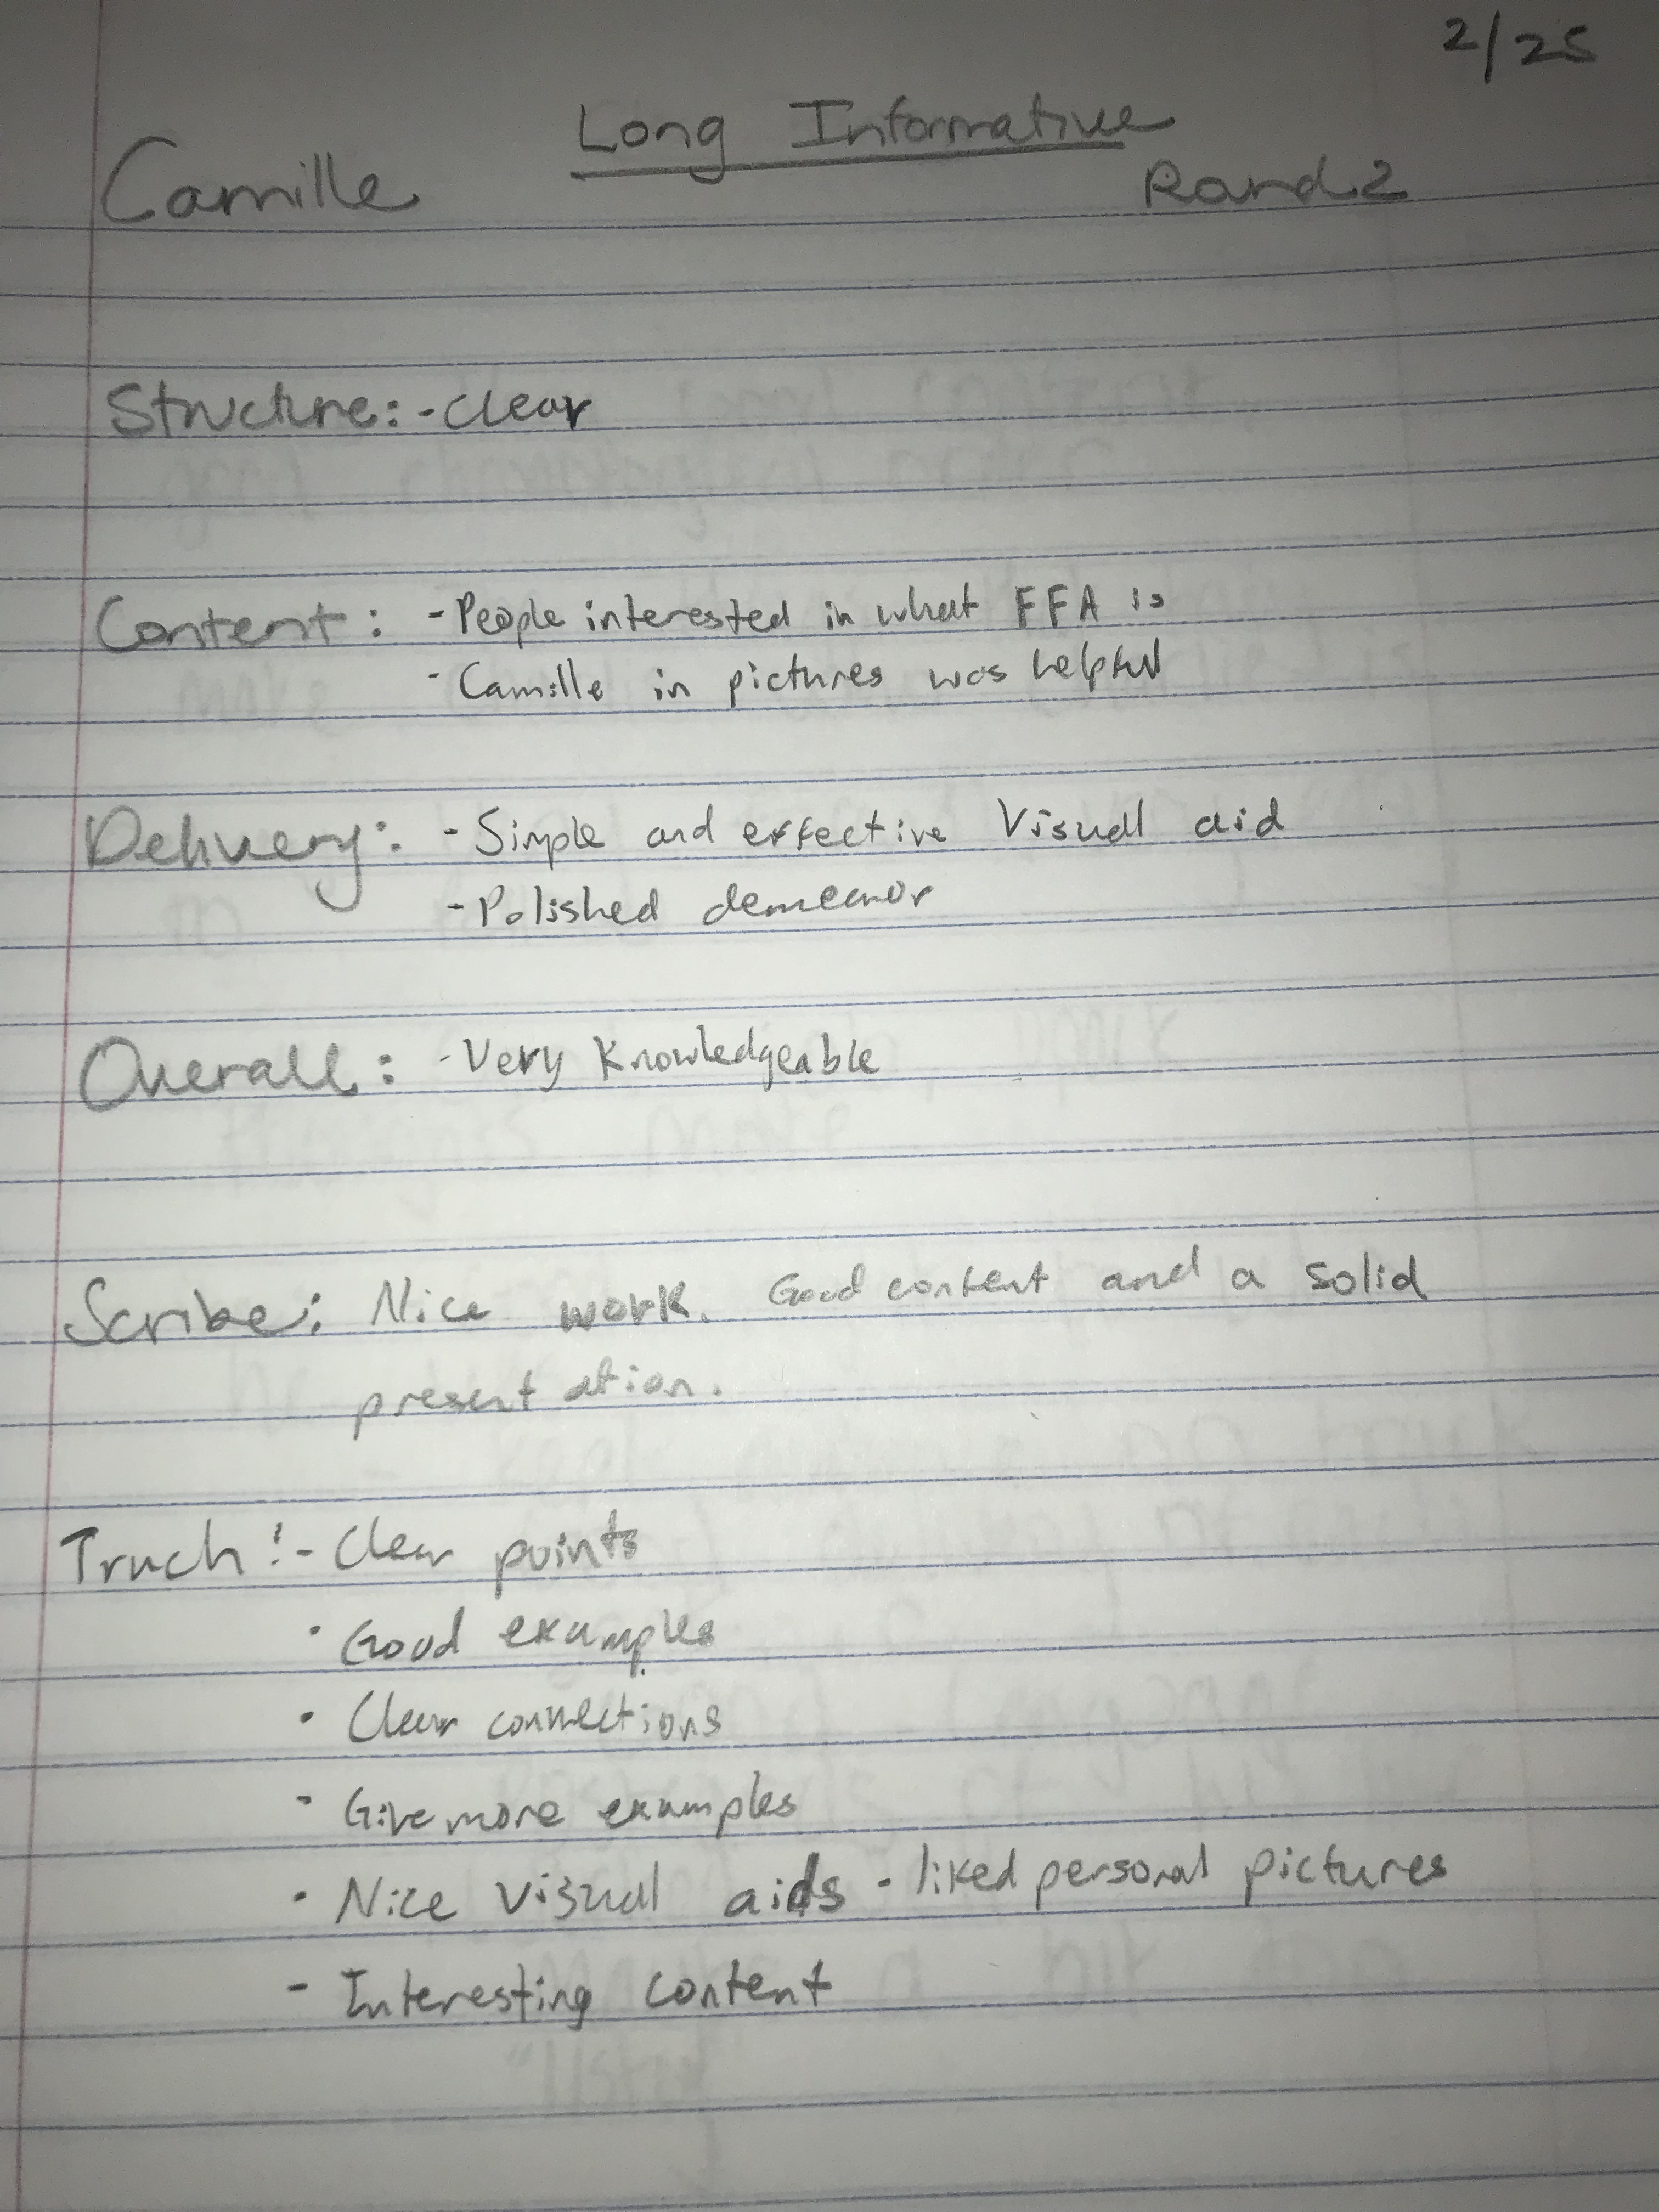 2/25
Long Informative
Camille Rand 2
Structure: - clear
Content: - People interested in what FFA is
- Camille in pictures was helpful
Delivery: - Simple and effective Visual aid
- Polished demeanor
Overall: - Very Knowledgeable
Scribe: Nice work. Good content and a solid
presentation.
Truch: - Clear points
· Good examples
· Clear connections
- Give more examples
· Nice visual aids - liked personal pictures
- Interesting content